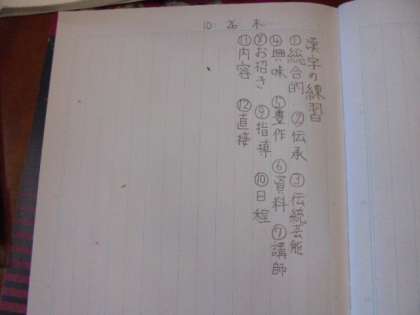 10 26 木
漢字の練習
①総合的 ②伝承 ③伝統芸能
④興味 ⑤豊作 ⑥資料 ⑦講師
⑧お招き ⑨指導 ⑩日程
⑪内容 ⑫直接